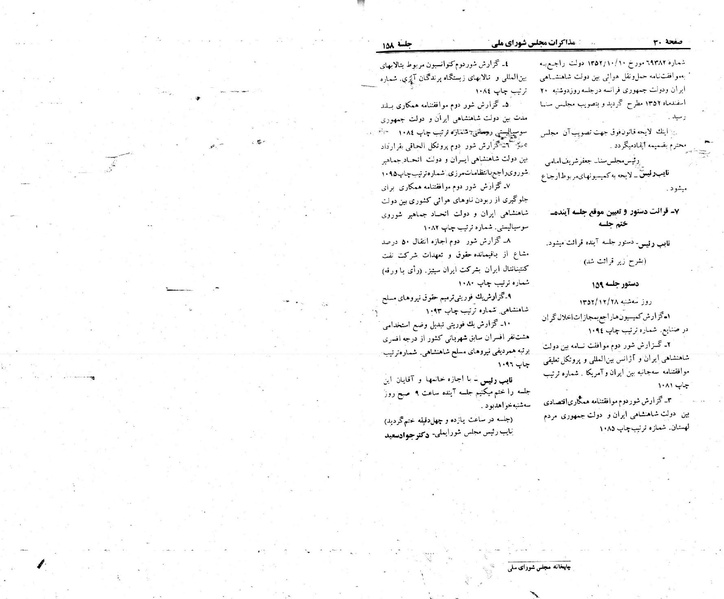 صفحهٔ ۳۰
مذاکرات مجلس شورای ملی
جلسهٔ ۱۵۸
شماره ۶۹۳۸۲ مورخ ۱۳۵۲/۱۰/۱۰ دولت راجع به
موافقت‌نامه حمل‌ونقل هوائی بین دولت شاهنشاهی
ایران ودولت جمهوری فرانسه درجلسه روزدوشنبه ۲۰
اسفندماه ۱۳۵۲ مطرح گردید و بتصویب مجلس سنا
رسید .
اینک لایحه قانون فوق جهت تصویب آن مجلس
محترم بضمیمه ایفاد میگردد .
رئیس مجلس سنا ـ جعفر شریف امامی
نایب رئیس ـ لایحه به کمیسیونهای مربوط ارجاع
میشود .
۷ـ قرائت دستور و تعیین موقع جلسه آینده ـ
ختم جلسه
نایب رئیس ـ دستور جلسه آینده قرائت میشود.
(بشرح زیر قرائت شد)
دستور جلسه ۱۵۹
روز سه‌شنبه ۱۳۵۲/۱۲/۲۸
۱ـ گزارش کمیسیون‌ها راجع بمجازات اخلال‌گران
در صنایع. شماره ترتیب چاپ ۱۰۹۴
۲ـ گزارش شور دوم موافقت نامه بین دولت
شاهنشاهی ایران و آژانس بین‌المللی و پروتکل تعلیقی
موافقتنامه سه‌جانبه بین ایران وآمریکا . شماره ترتیب
چاپ ۱۰۸۱
۳ـ گزارش شوردوم موافقتنامه همکاری اقتصادی
بین دولت شاهنشاهی ایران و دولت جمهوری مردم
لهستان. شماره ترتیب چاپ ۱۰۸۵
۴ـ گزارش شور دوم کنوانسیون مربوط بتالابهای
بین‌المللی و تالابهای زیستگاه پرندگان آبزی. شماره
ترتیب چاپ ۱۰۸۴
۵ـ گزارش شور دوم موافقتنامه همکاری بلند
مدت بین دولت شاهنشاهی ایران و دولت جمهوری
سوسیالیستی رومانی. شماره ترتیب چاپ ۱۰۸۴
۶ـ گزارش شور دوم پروتکل الحاقی بقرارداد
بین دولت شاهنشاهی ایران و دولت اتحاد جماهیر
شوروی راجع بانتظامات مرزی. شماره ترتیب چاپ ۱۰۹۵
۷ـ گزارش شور دوم موافقتنامه همکاری برای
جلوگیری از ربودن ناوهای هوائی کشوری بین دولت
شاهنشاهی ایران و دولت اتحاد جماهیر شوروی
سوسیالیستی. شماره ترتیب چاپ ۱۰۸۲
۸ـ گزارش شور دوم اجازه انتقال ۵۰ درصد
مشاع از باقیمانده حقوق و تعهدات شرکت نفت
کنتیناننال ایران بشرکت ایران سیتیز. (رأی با ورقه)
شماره ترتیب چاپ ۱۰۸۰
۹ـ گزارش یک فوریتی ترمیم حقوق نیروهای مسلح
شاهنشاهی. شماره ترتیب چاپ ۱۰۹۳
۱۰ـ گزارش یک فوریتی تبدیل وضع استخدامی
هشت‌نفر افسران سابق شهربانی کشور از درجه افسری
برتبه همردیفی نیروهای مسلح شاهنشاهی. شماره ترتیب
چاپ ۱۰۹۶
نایب رئیس ـ با اجازه خانمها و آقایان این
جلسه را ختم میکنیم جلسه آینده ساعت ۹ صبح روز
سه‌شنبه خواهد بود .
(جلسه در ساعت یازده و چهل دقیقه ختم گردید)
نایب رئیس مجلس شورایملی ـ دکتر جواد سعید
چاپخانه مجلس شورای ملی